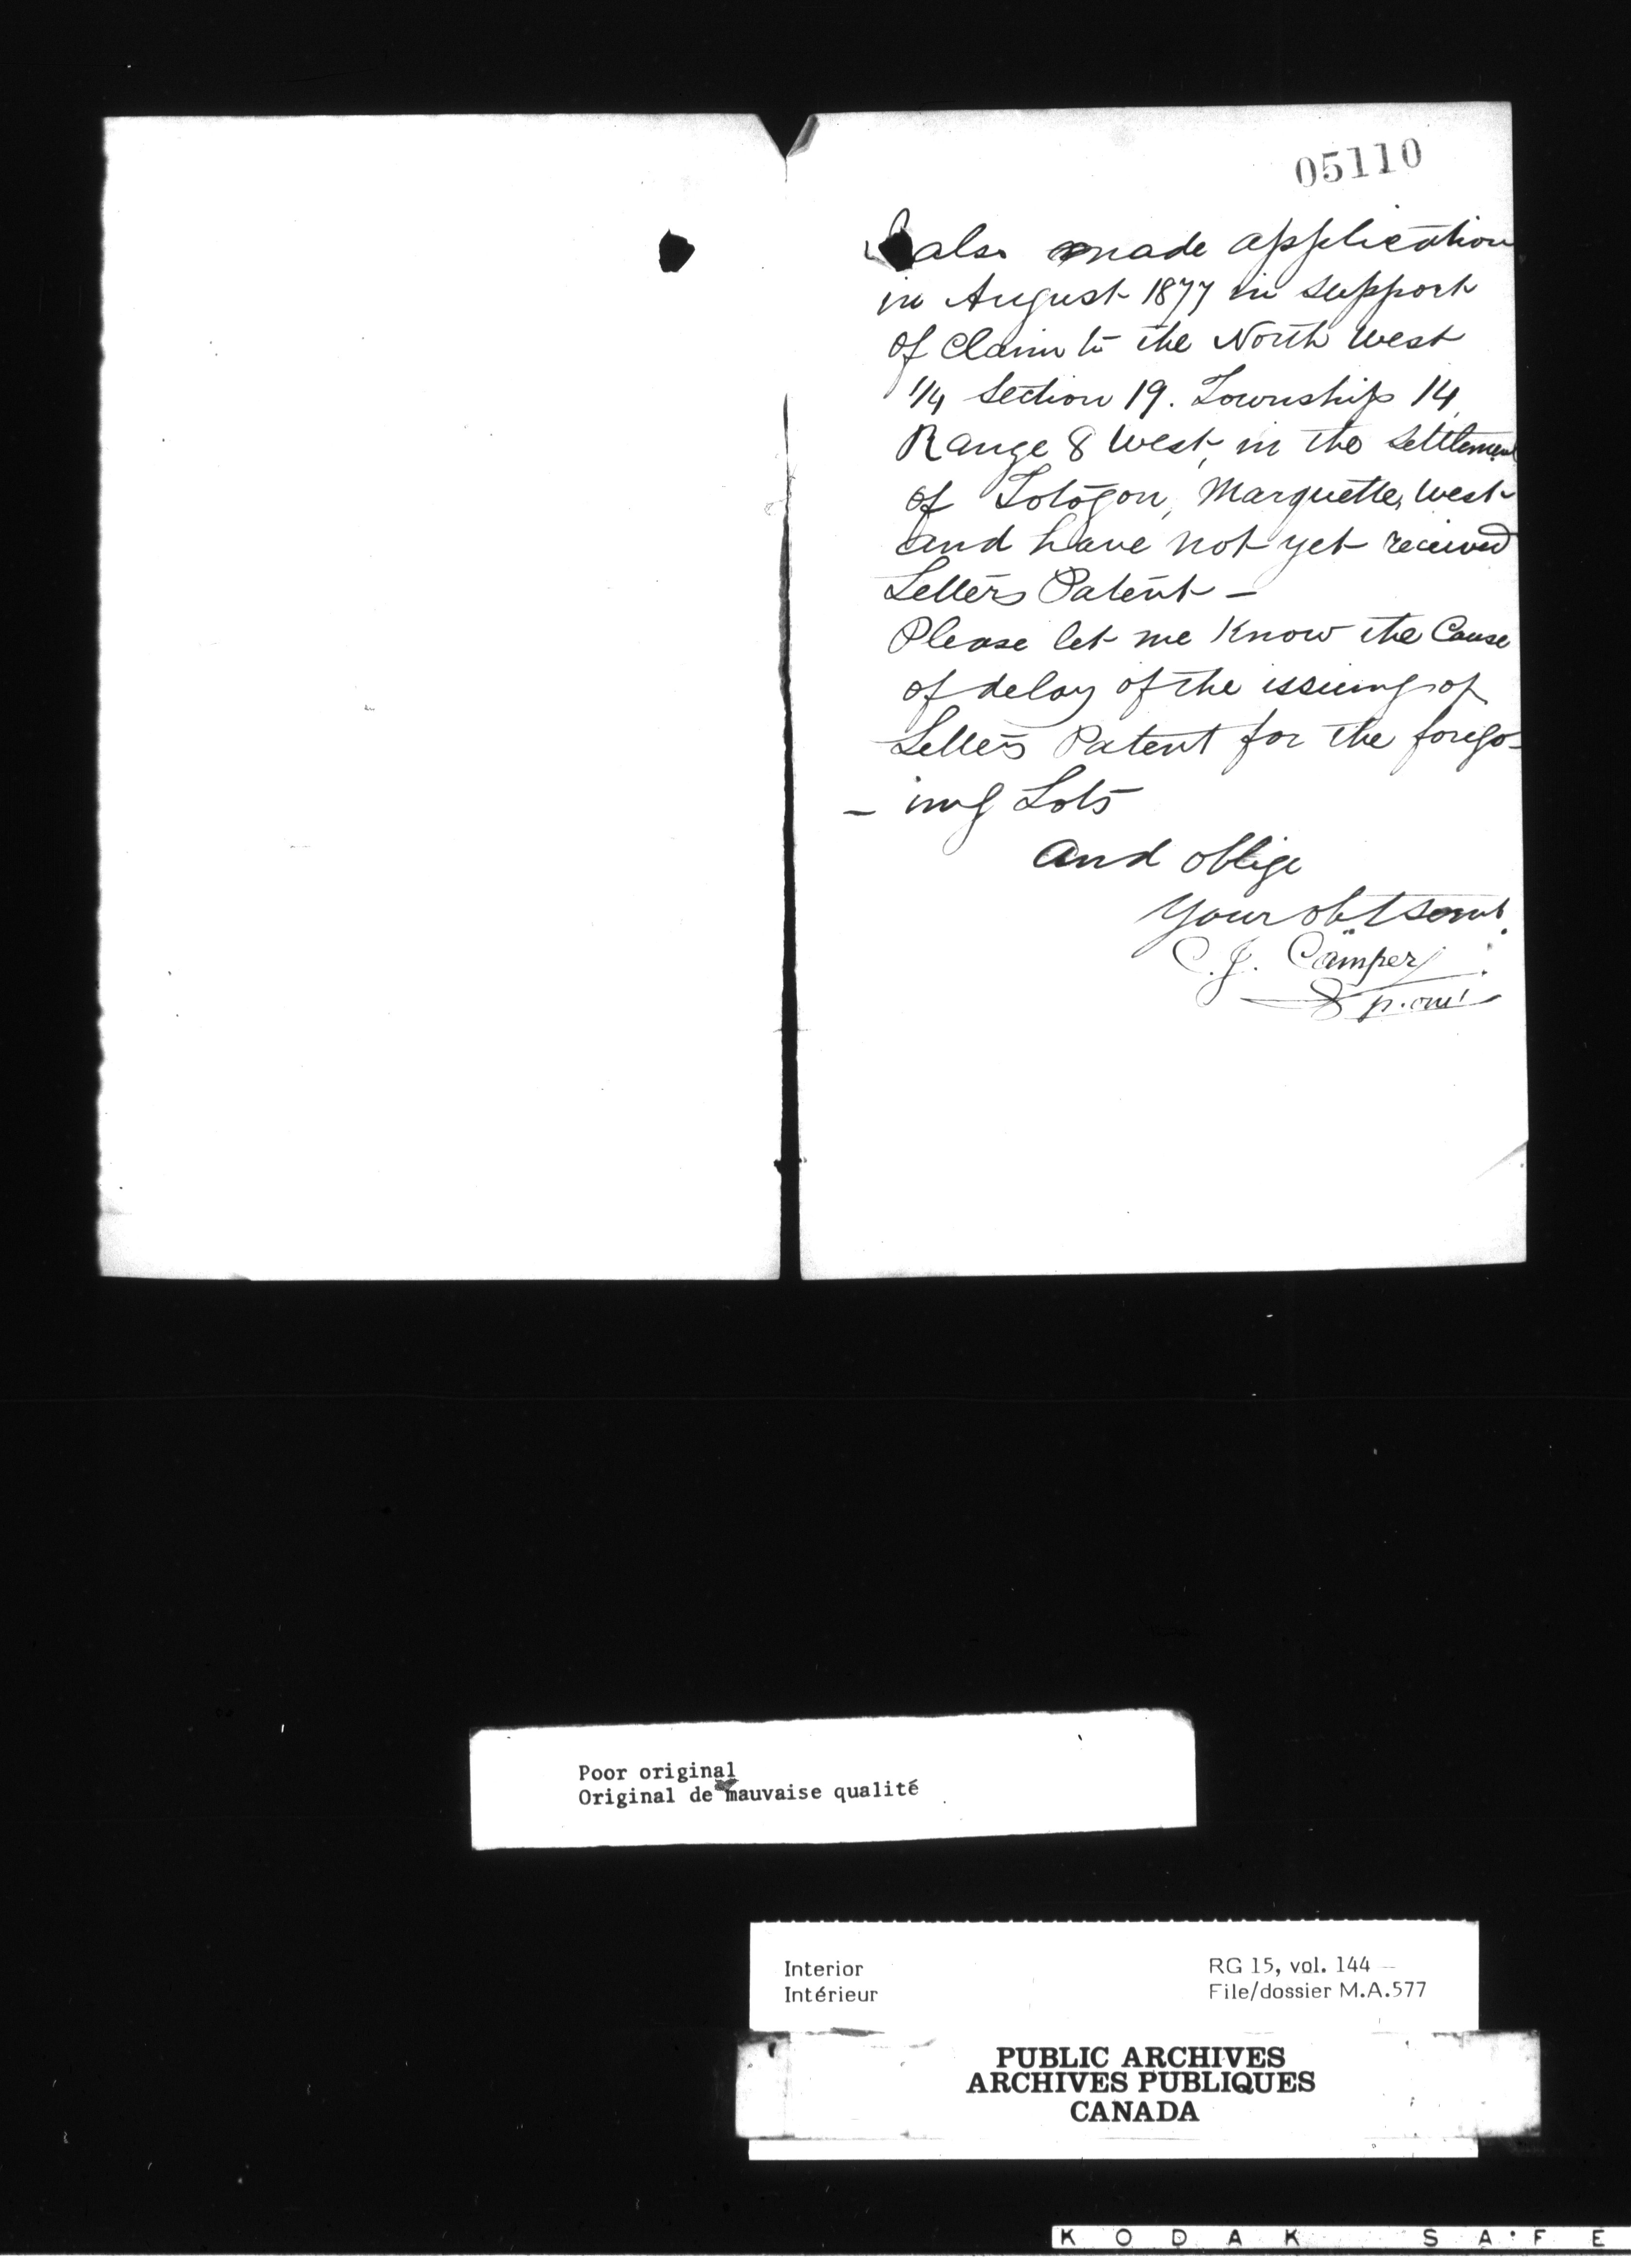 05110
I also made application
in August 1877 in support
of Claim to the North West
1/4 Section 19. Township 14,
Range 8 West, in the Settlement
of Totogon, Marquette, West
and have not yet received
Letters Patent —
Please let me Know the Cause
of delay of the issuing of
Letters Patent for the forego-
- ing Lots
and oblige
Your obt servt.
C. J. Camper
p. omi
Poor original
Original de mauvaise qualité
Interior
Intérieur
RG 15, vol. 144
File/dossier M.A.577
PUBLIC ARCHIVES
ARCHIVES PUBLIQUES
CANADA
KODAK SAFE